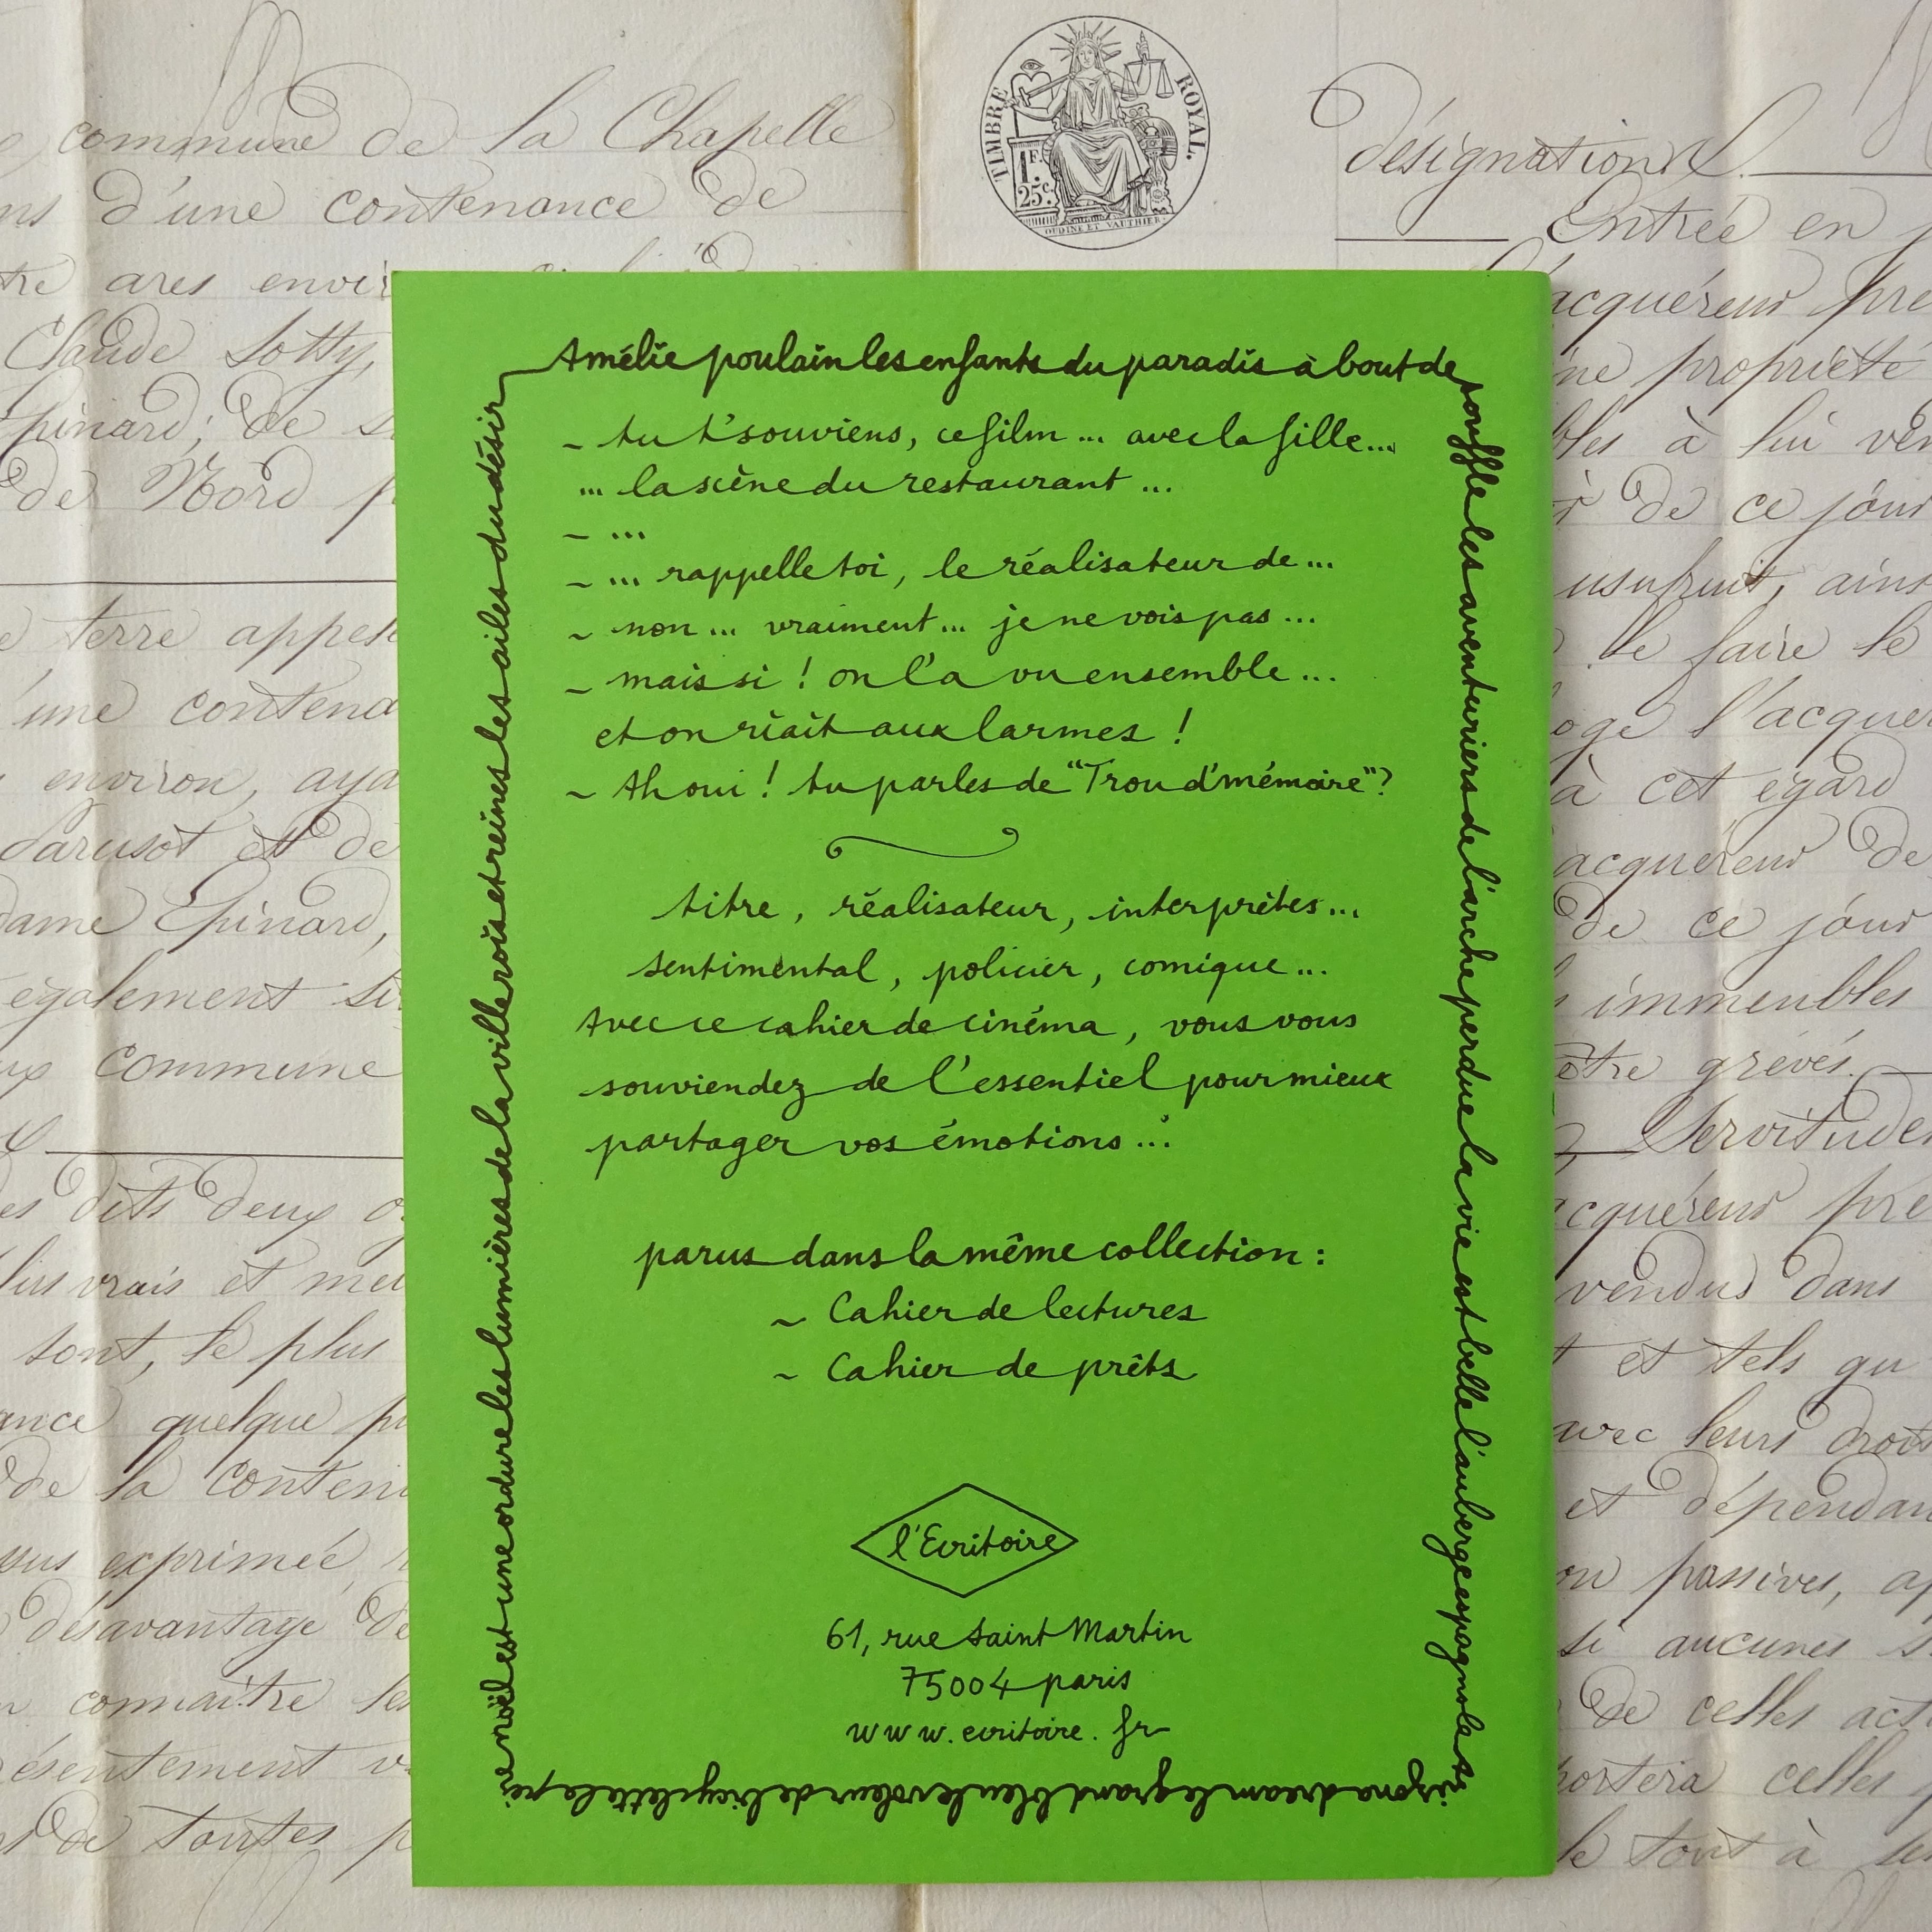 TIMBRE ROYAL.
1 F. 25 c.
OUDINÉ ET VAUTHIER
commune de la Chapelle
d'une contenance de
ares envir
Claude Lotty,
Epinard; de
de Nord
terre appel
une contena
environ, aya
et de
dame Epinard,
également
commune
dits deux
vrais et
sont, le plus
quelque
de la conten
exprimée,
désavantage de
connaître les
de toutes
désignation
Entrée en
acquéreur
propriété
à lui
de ce jour
usufruit, ains
le faire le
l'acquer
à cet égard
acquéreur de
de ce jour
immeubles
être grevés.
Servitude
acquéreur
vendus dans
et tels qu
avec leurs droit
et dépendan
passives,
si aucunes
de celles
portera celles
le tout à
Amélie poulain les enfants du paradis à bout de
souffle les aventuriers de l'arche perdue la vie est belle l'auberge espagnole la st
rizona dream le grand bleu le voleur de bicyclette le pè
re noël est une ordure les lumières de la ville rois et reines les ailes du désir
~ tu t'souviens, ce film... avec la fille...
... la scène du restaurant ...
~ ...
~ ... rappelle toi, le réalisateur de...
~ non... vraiment... je ne vois pas...
~ mais si ! on l'a vu ensemble...
et on riait aux larmes !
~ Ah oui ! tu parles de "Trou d'mémoire"?
titre, réalisateur, interprètes...
sentimental, policier, comique...
Avec ce cahier de cinéma, vous vous
souviendez de l'essentiel pour mieux
partager vos émotions...
parus dans la même collection :
~ Cahier de lectures
~ Cahier de prêts
l'Ecritoire
61, rue Saint Martin
75004 paris
www.ecritoire.fr